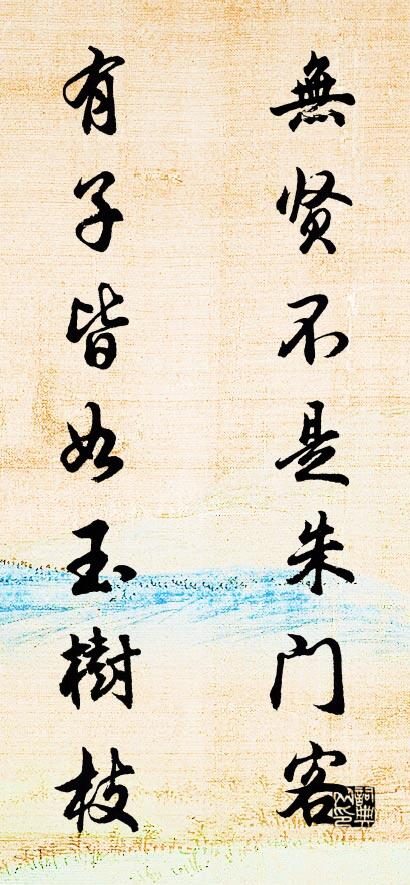 無贤不是朱门客
有子皆如玉樹枝